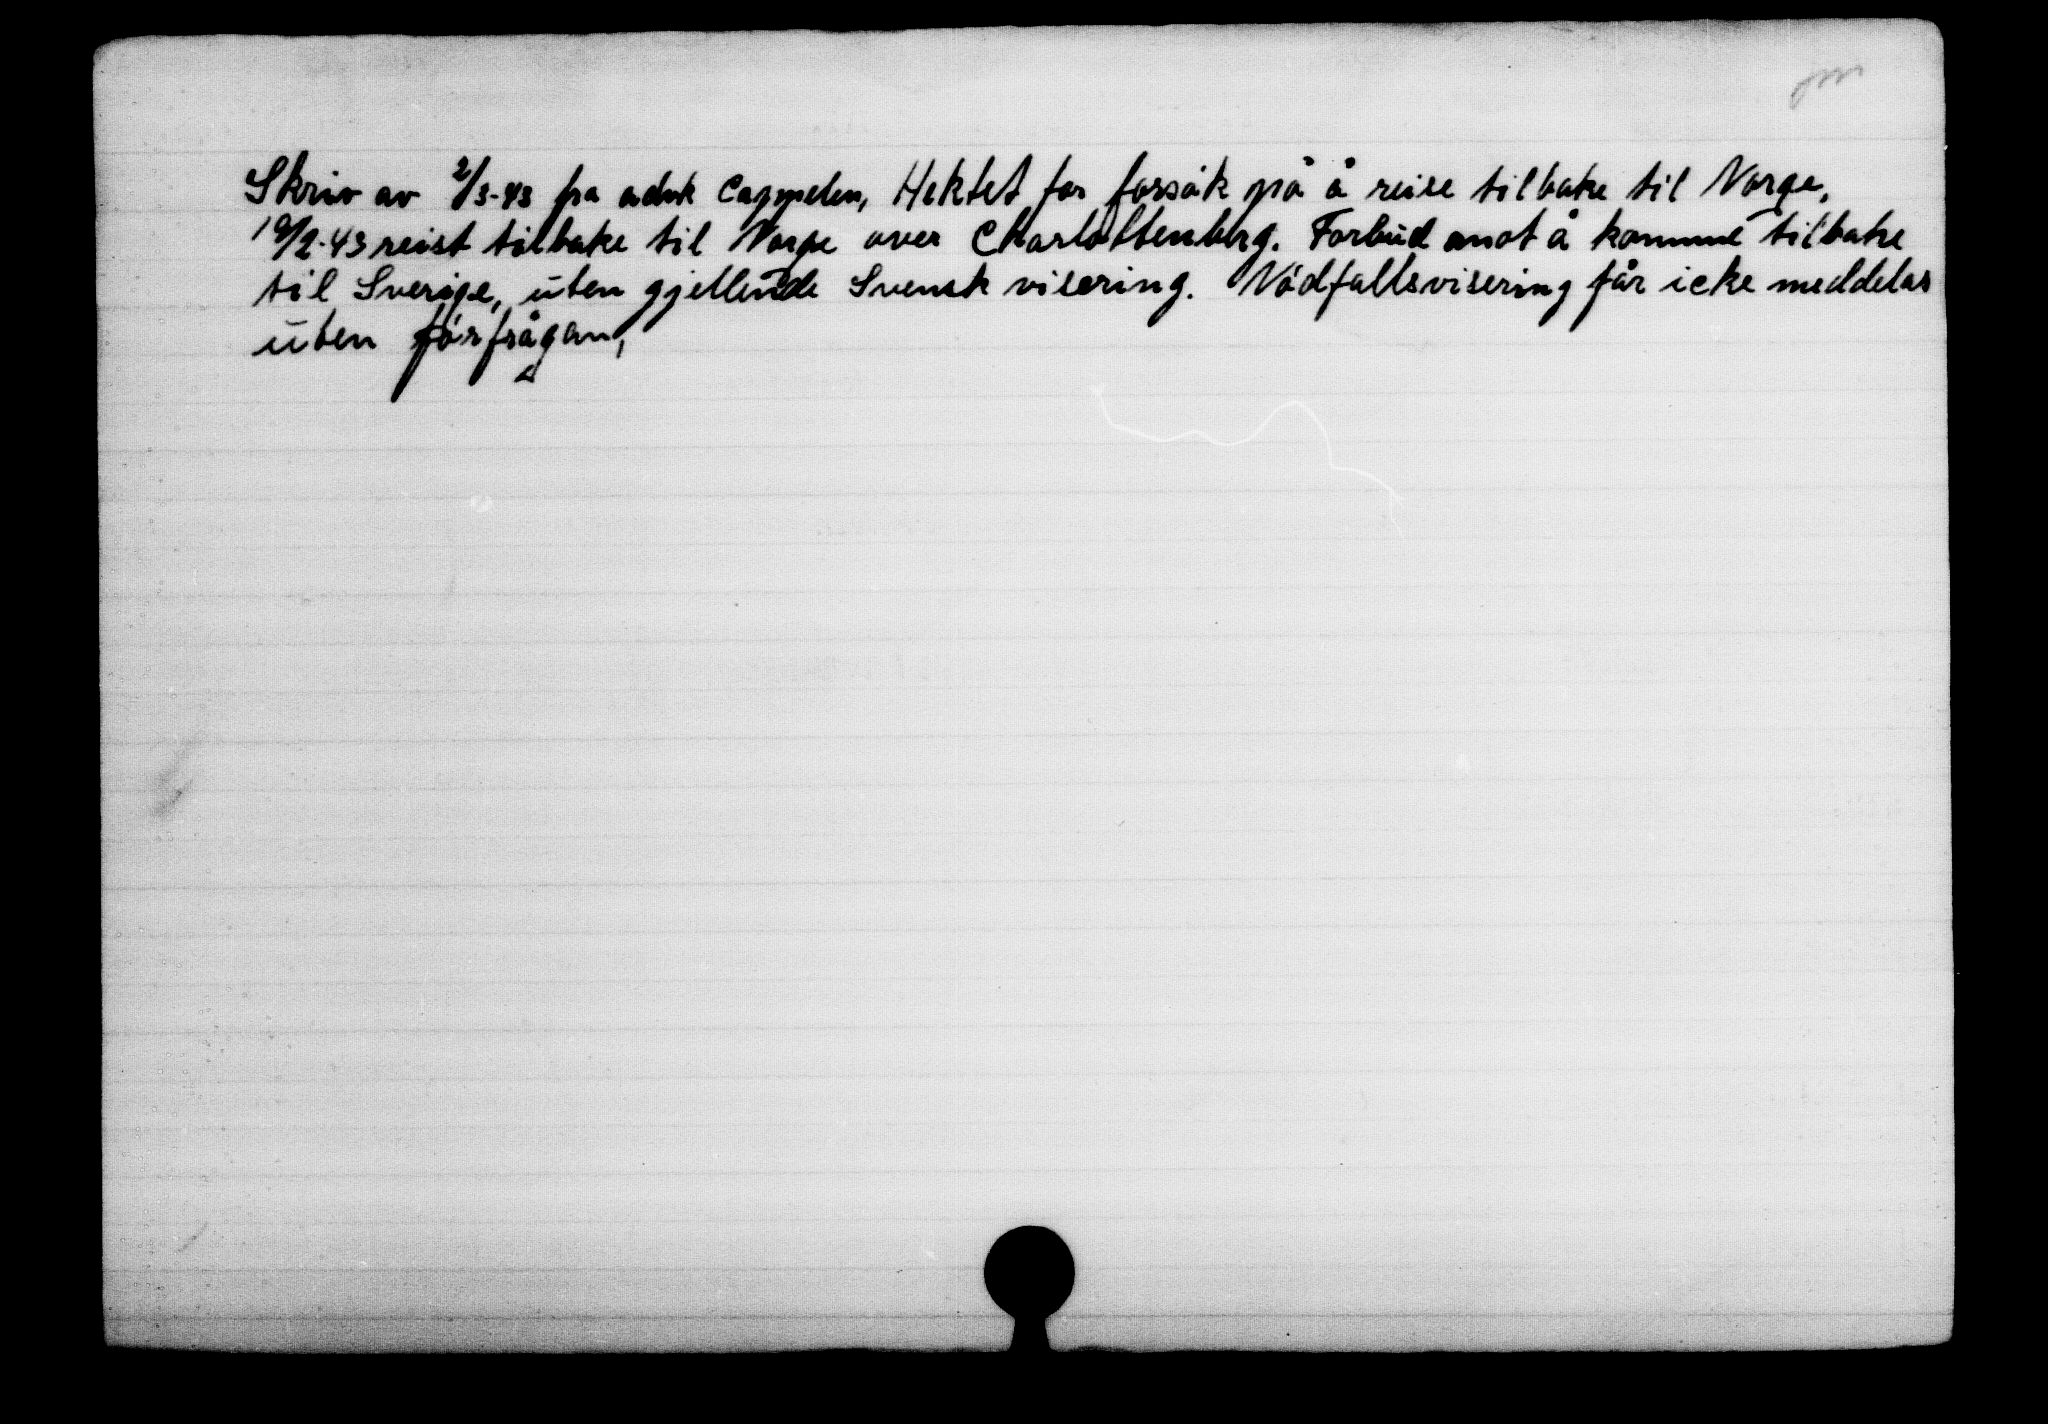 Skriv av 2/3-43 fra advk Cappelen, Hektet for forsøk på å reise tilbake til Norge,
19/2-43 reist tilbake til Norge over Charlottenberg. Forbud mot å komme tilbake
til Sverige, uten gjellende Svensk visering. Nödfallsvisering får icke meddelas
uten förfrågan,